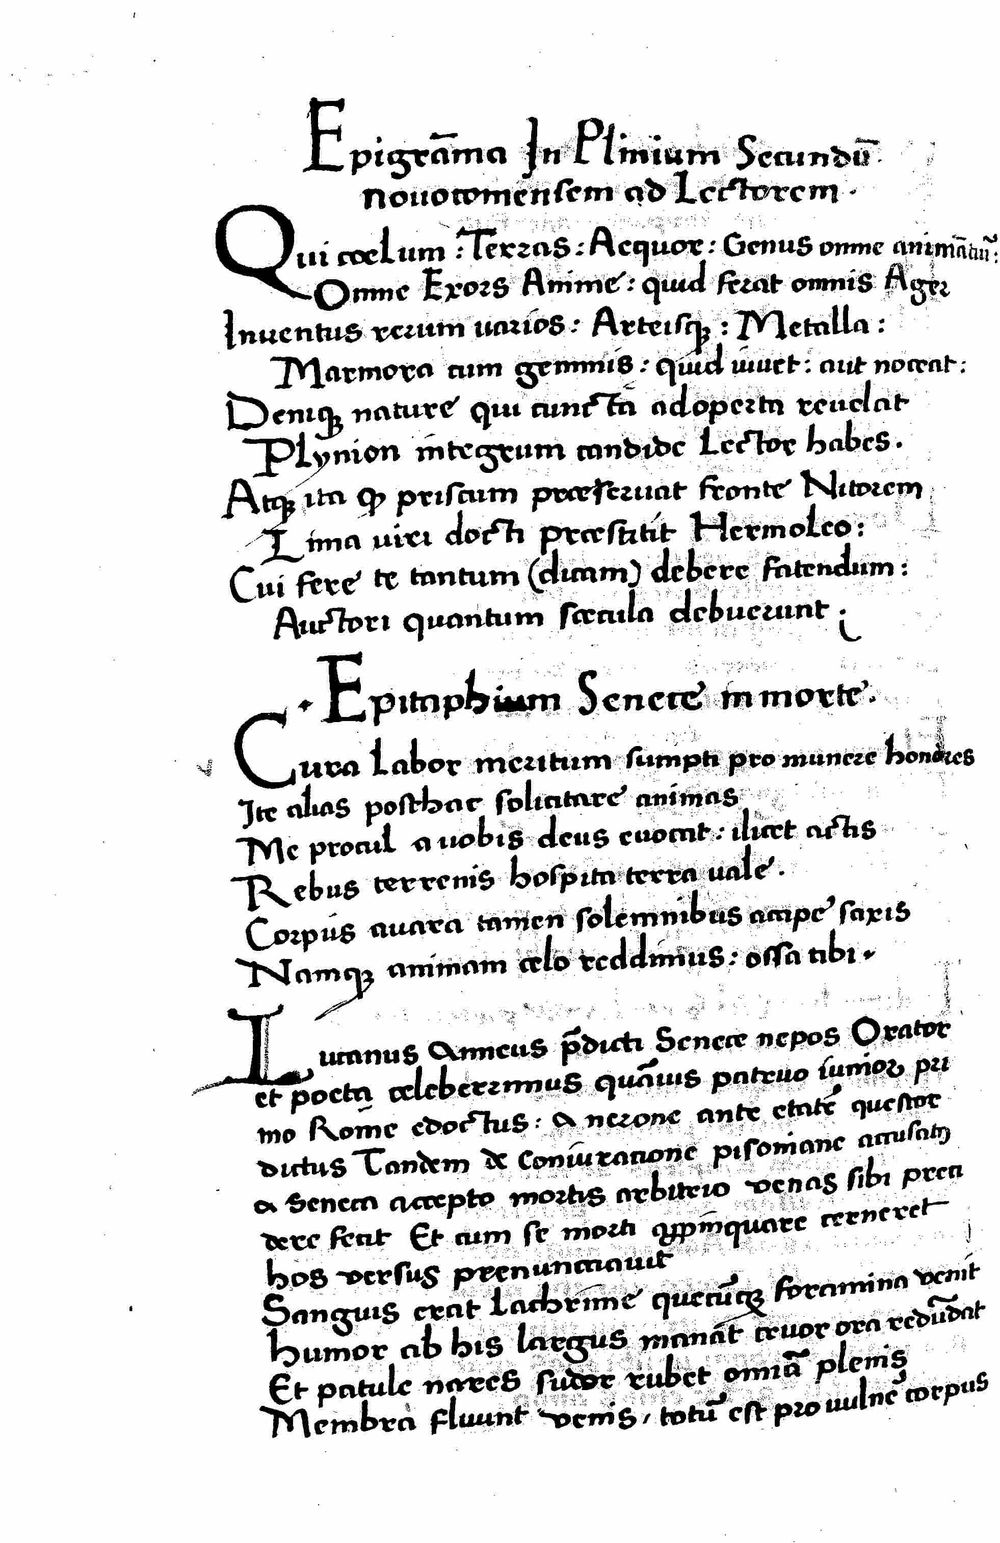 Epigrāma In Plinium Secundū
nouocomensem ad Lectorem .
Qui cœlum : Terras : Aequor : Genus omne animātiū :
Omne Exors Anime : quid ferat omnis Ager
Inuentus rerum uarios : Arteisqꝫ : Metalla :
Marmora cum gemmis : quid iuuet : aut noceat :
Deniqꝫ nature qui cuncta adoperta reuelat
Plynion integrum candide Lector habes .
Atqꝫ ita ꝙ priscum præseruat fronte Nitorem
Lima uiri docti præstitit Hermoleo :
Cui fere te tantum (dicam) debere fatendum :
Auctori quantum sœcula debuerunt ;
Epitaphium Senece in morte .
Cura labor meritum sumpti pro munere honores
Ite alias posthac solicitare animas
Me procul a uobis deus euocat : ilicet actis
Rebus terrenis hospita terra uale .
Corpus auara tamen solemnibus accipe saxis
Namqꝫ animam celo reddimus : ossa tibi .
Lucanus Anneus p̄dicti Senece nepos Orator
et poeta celeberrimus quāuis patruo iunior pri
mo Rome edoctus : a nerone ante etatē questor
dictus Tandem de Coniuratione pisoniane accusatꝰ
a Seneca accepto mortis arbitrio venas sibi preci
dere fecit Et cum se morti appinquare cerneret
hos versus prenunciauit
Sanguis erat Lachrime quecūqꝫ foramina venit
humor ab his largus manat cruor ora redūdat
Et patule nares sudor rubet omīa plenis
Membra fluunt venis , totū est pro uulnere corpus